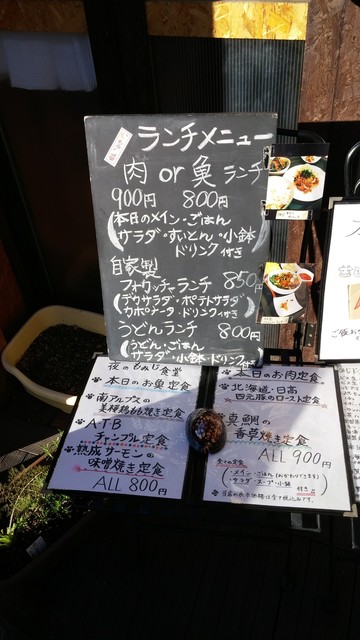 ランチメニュー
肉 or 魚 ランチ
900円 800円
本日のメイン・ごはん
サラダ・すいとん・小鉢
ドリンク付き
自家製
フォカッチャランチ 850円
デカサラダ・ポテトサラダ
カポナータ・ドリンク付き
うどんランチ 800円
うどん・ごはん
サラダ・小鉢・ドリンク付き
夜のもみじ食堂
本日のお魚定食
南アルプスの
美桜鶏もも焼き定食
ATB
チャンプル定食
熟成サーモンの
味噌焼き定食
ALL 800円
本日のお肉定食
北海道・日高
四元豚のロースト定食
真鯛の
香草焼き定食
ALL 900円
全ての定食
メイン・ごはん(おかわりできます)
サラダ・スープ・小鉢
付き
当店の表示価格は全て税込みです。